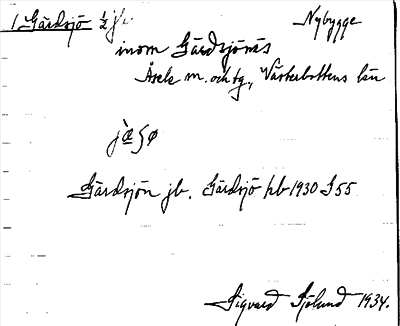 1 Gärdsjö ½ j/. Nybygge
inom Gärdsjönäs
Åsele m. och tg., Västerbottens län
Gärdsjön jb. Gärdsjö hb 1930 I 55
Sigvard Sjölund 1934.